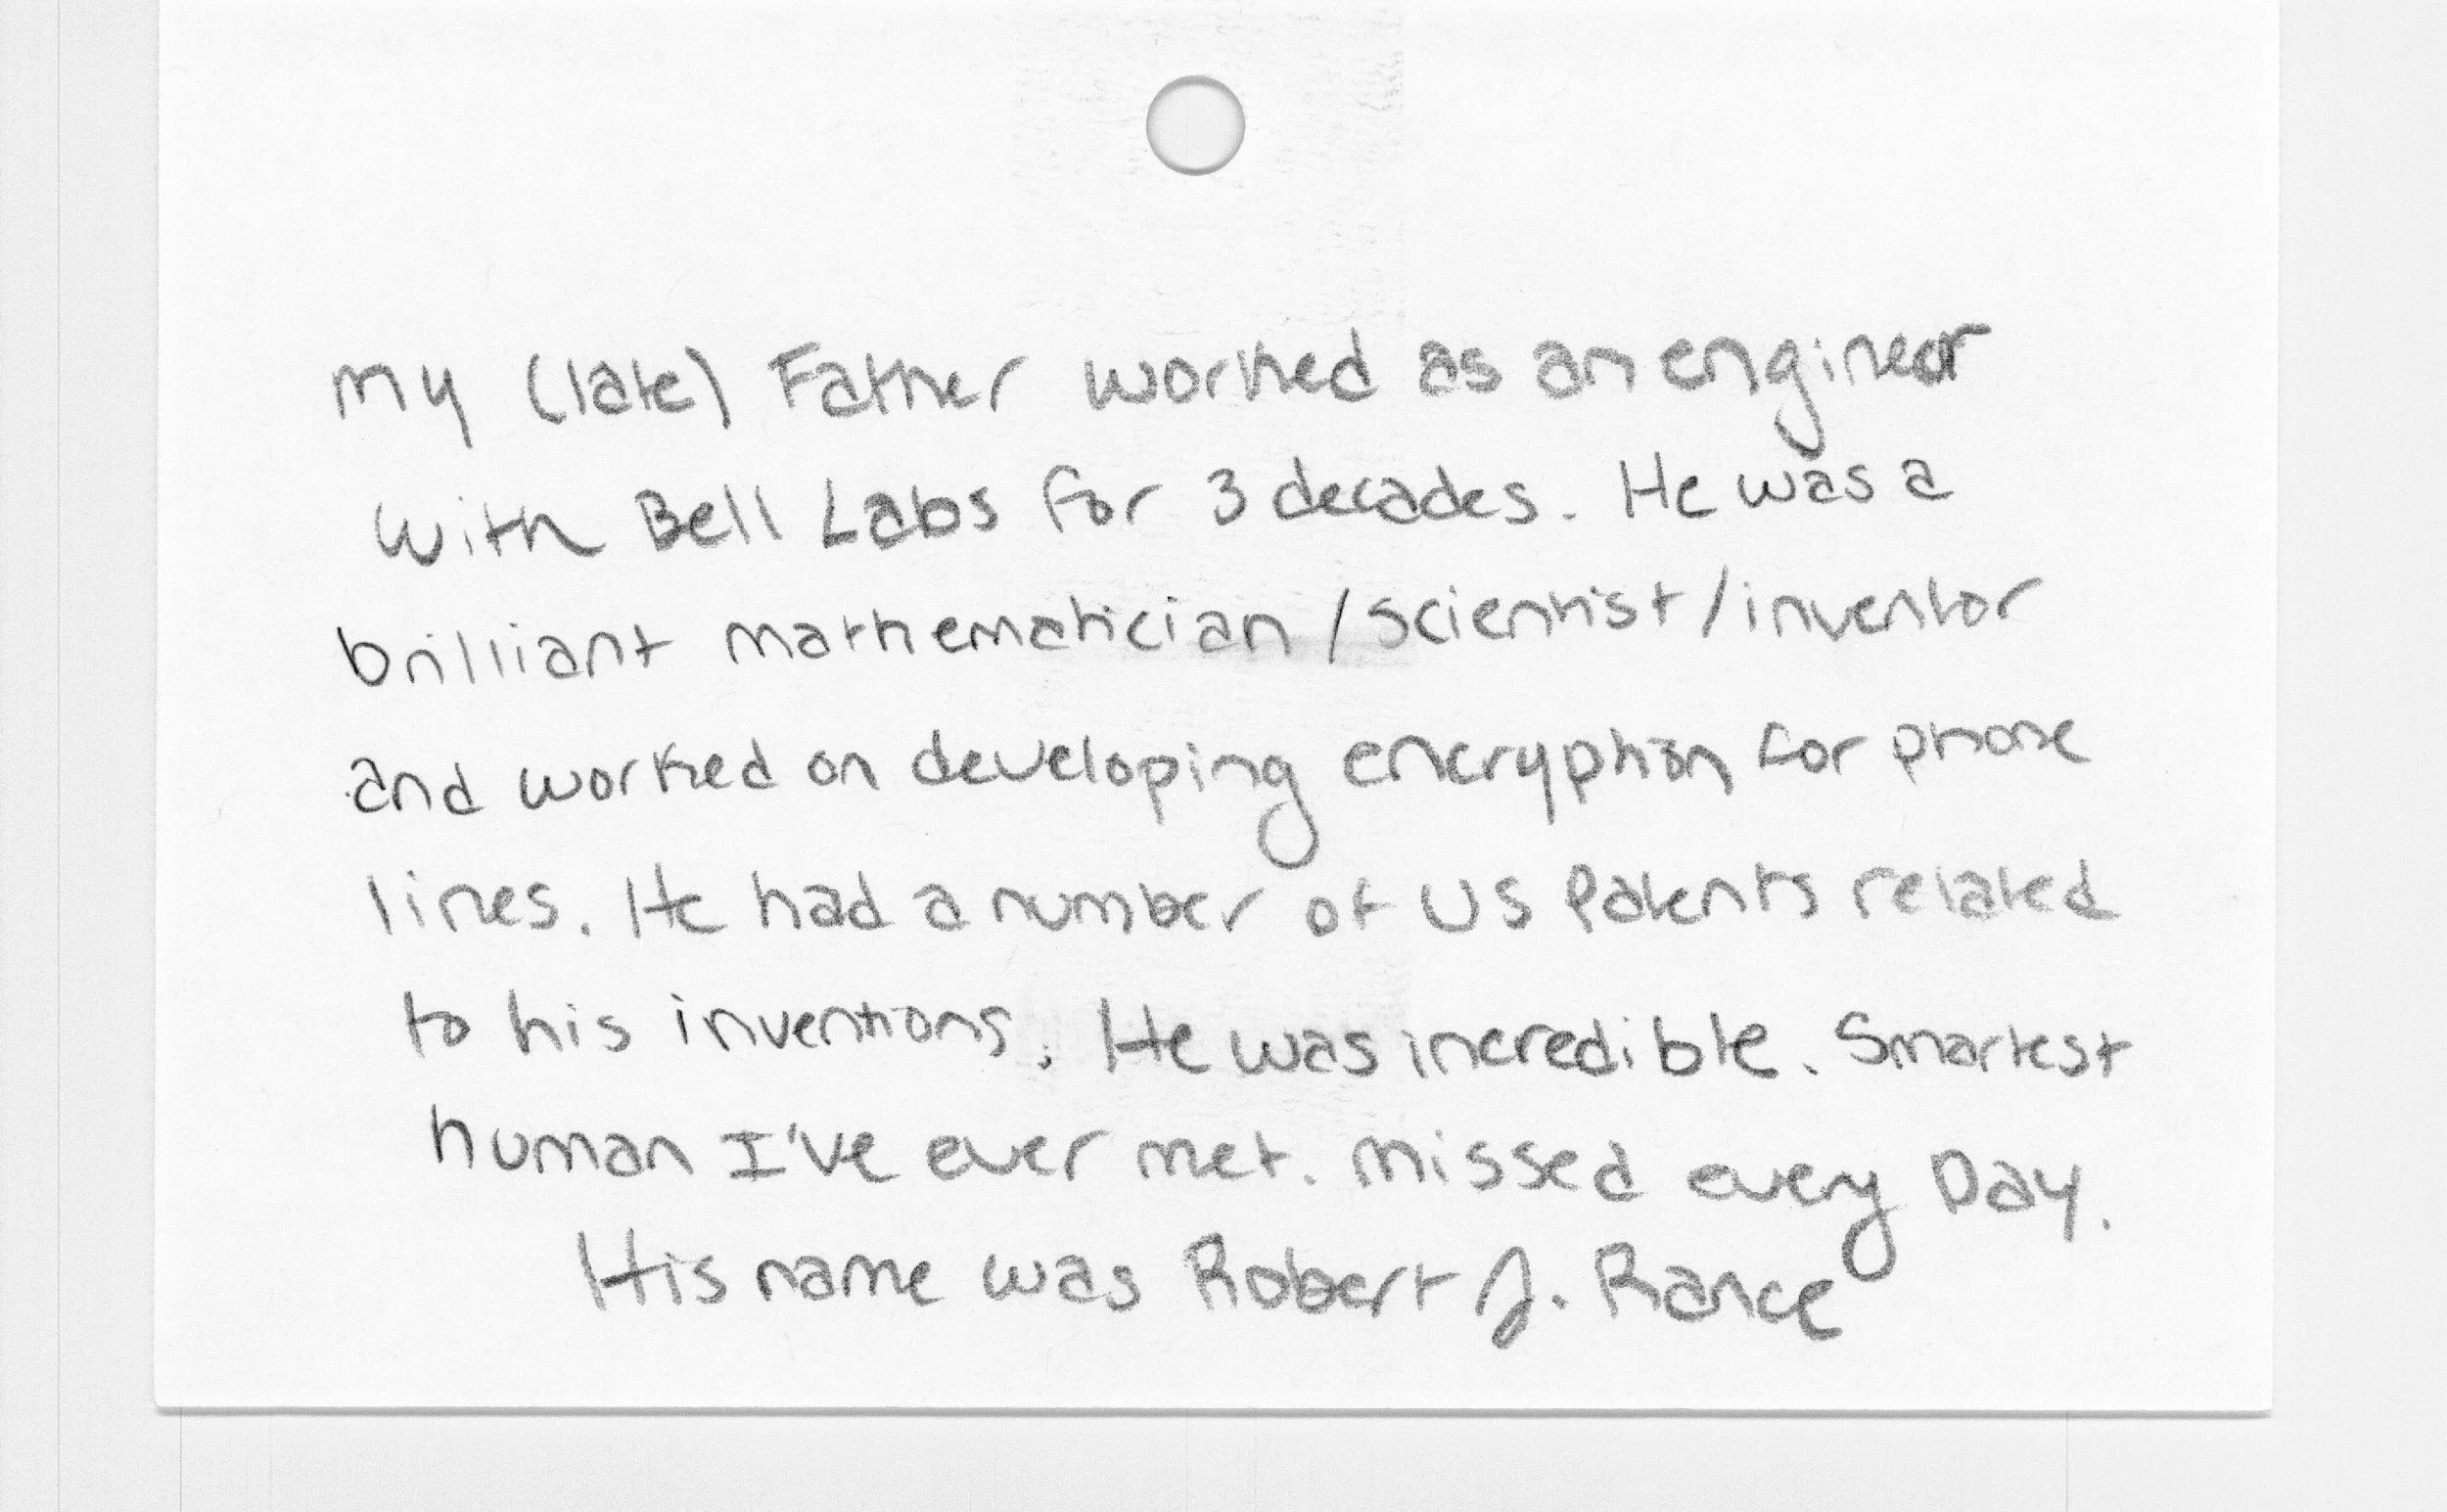 My (late) Father worked as an engineer
with Bell Labs for 3 decades. He was a
brilliant mathematician / scientist / inventor
and worked on developing encryption for phone
lines. He had a number of US Patents related
to his inventions. He was incredible. Smartest
human I've ever met. Missed every Day.
His name was Robert J. Rance